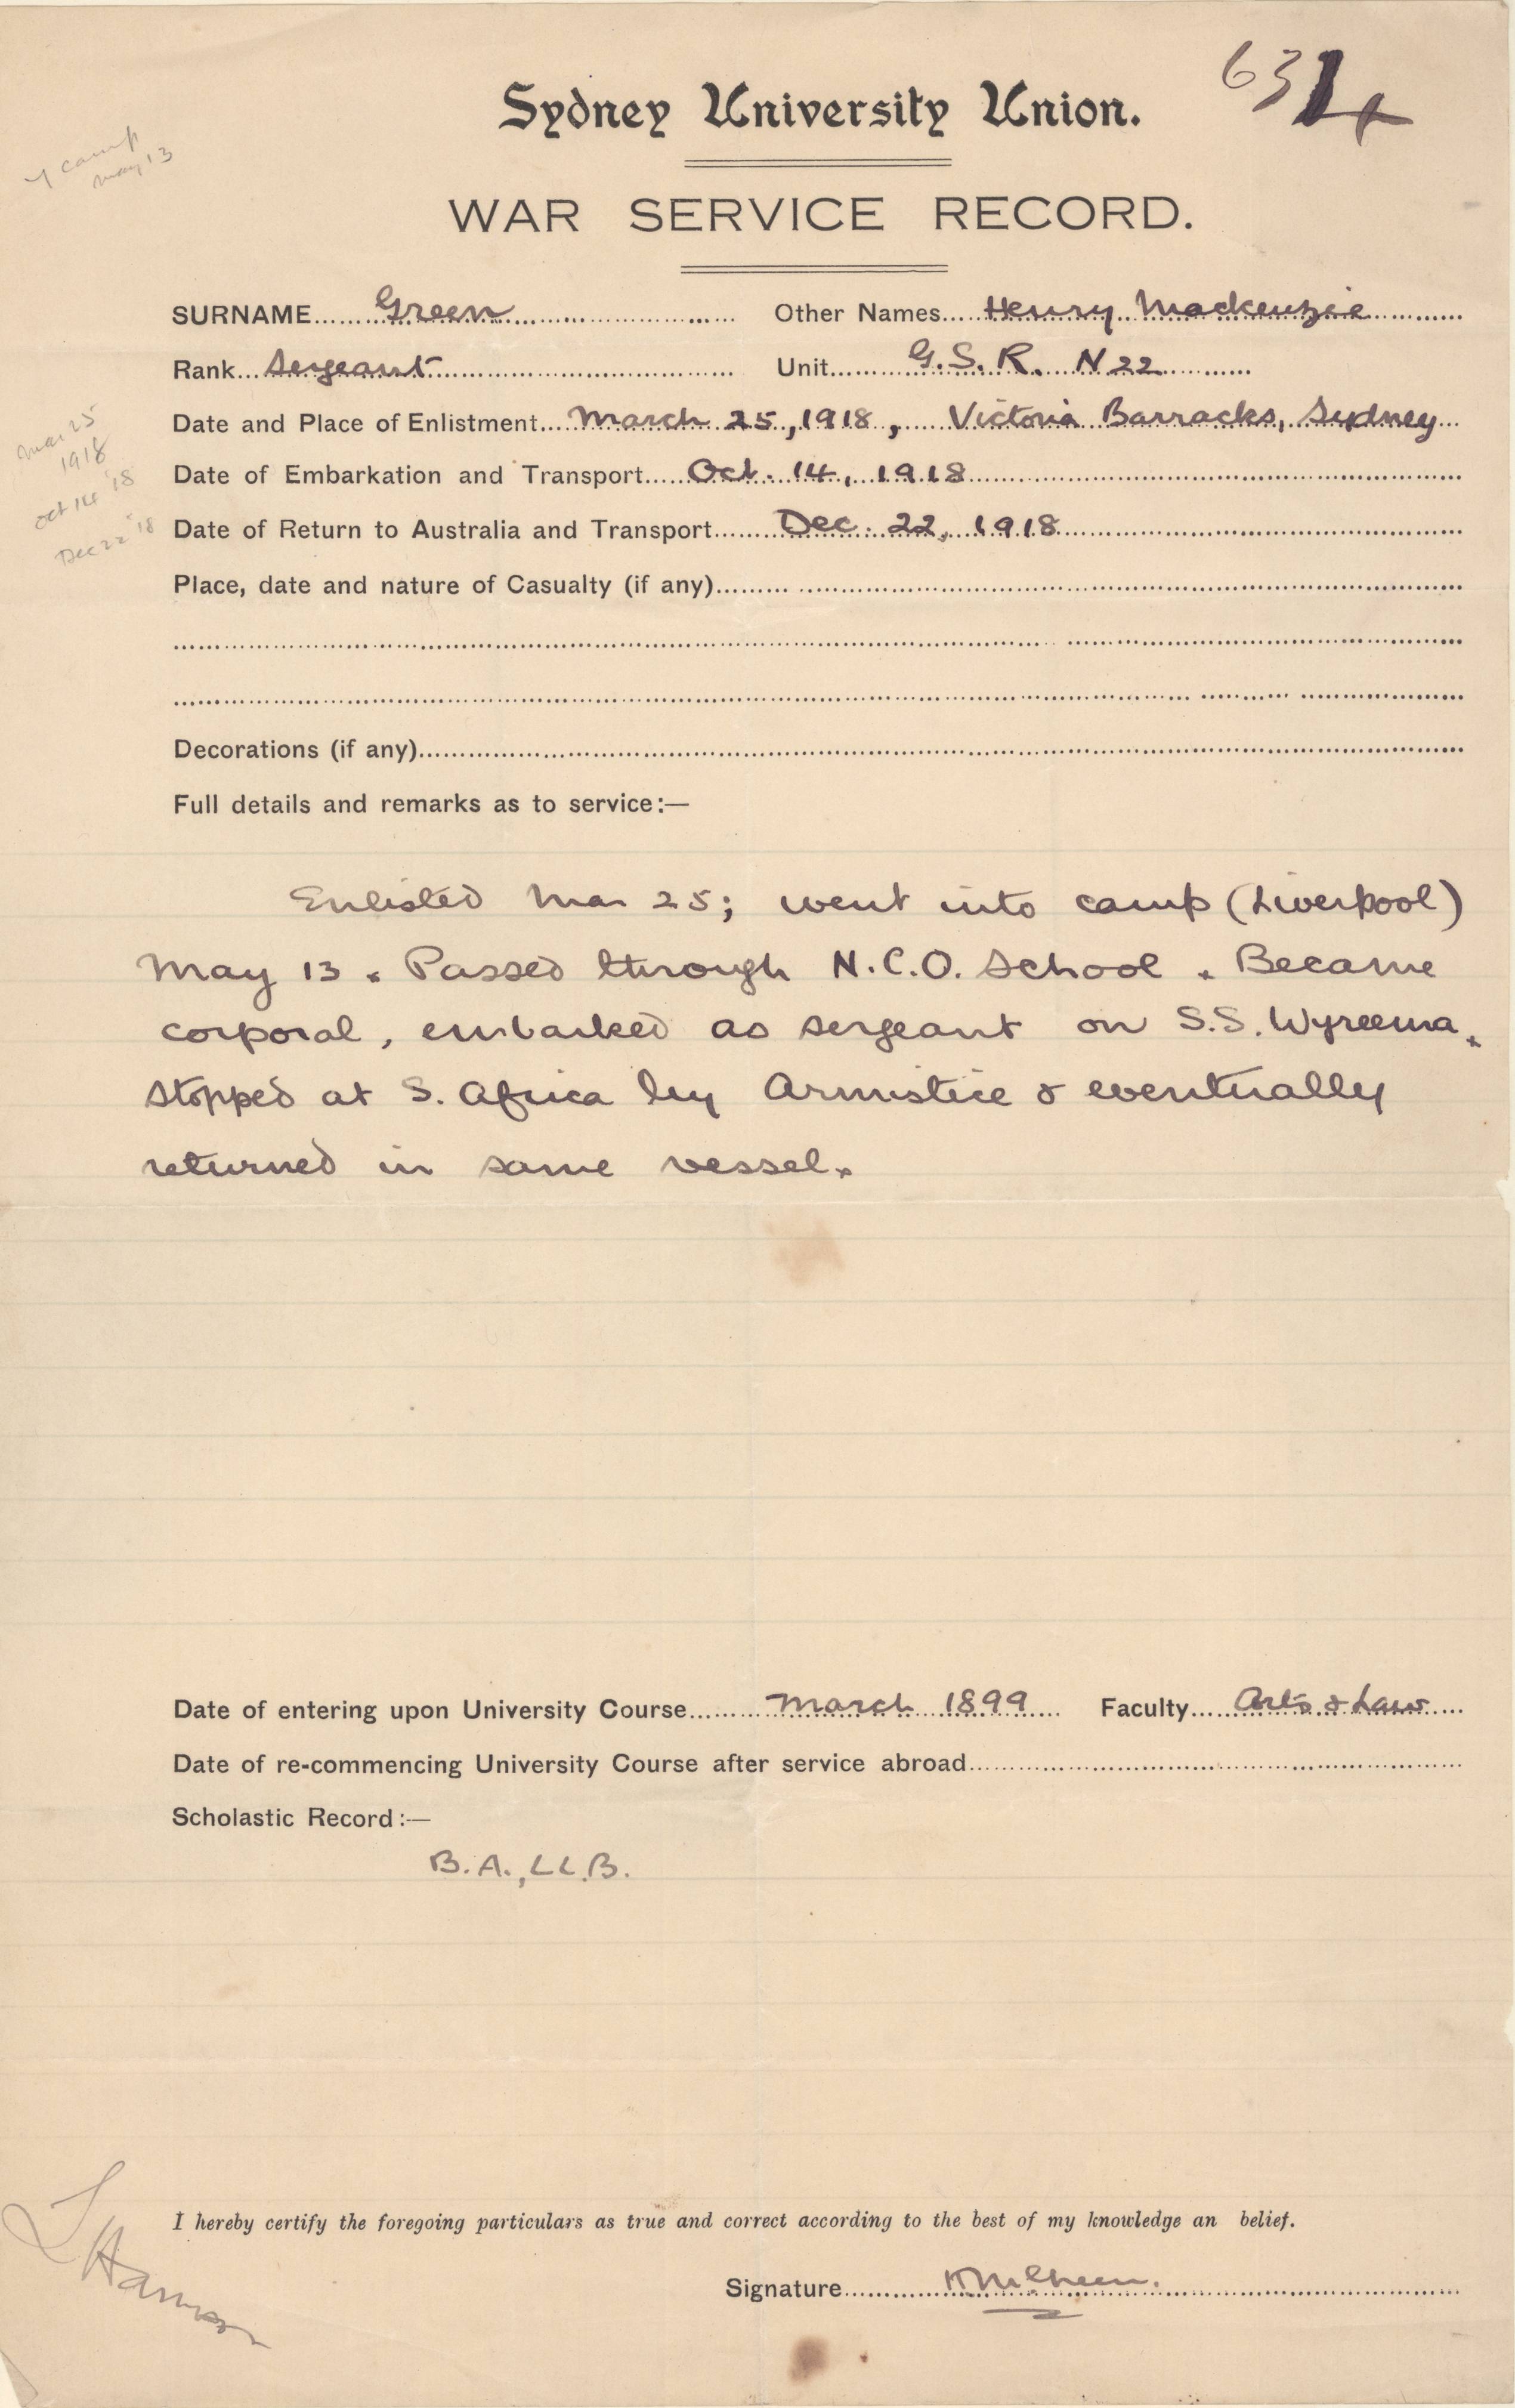 631
Sydney University Union.
camp
May 13
WAR SERVICE RECORD.
SURNAME Green Other Names Henry Mackenzie
Rank Sergeant Unit G.S.R. N 22
Date and Place of Enlistment March 25, 1918, Victoria Barracks, Sydney
Mar 25
1918
Date of Embarkation and Transport Oct. 14, 1918
Oct 14 '18
Date of Return to Australia and Transport Dec. 22, 1918
Dec 22 '18
Place, date and nature of Casualty (if any)
Decorations (if any)
Full details and remarks as to service:—
Enlisted Mar 25; went into camp (Liverpool)
May 13. Passed through N.C.O. School. Became
corporal, embarked as sergeant on S.S. Wyreema.
Stopped at S. Africa by Armistice & eventually
returned in same vessel.
Date of entering upon University Course March 1899 Faculty Arts & Law
Date of re-commencing University Course after service abroad
Scholastic Record:—
B.A., LL.B.
I hereby certify the foregoing particulars as true and correct according to the best of my knowledge an belief.
Signature HMGreen.